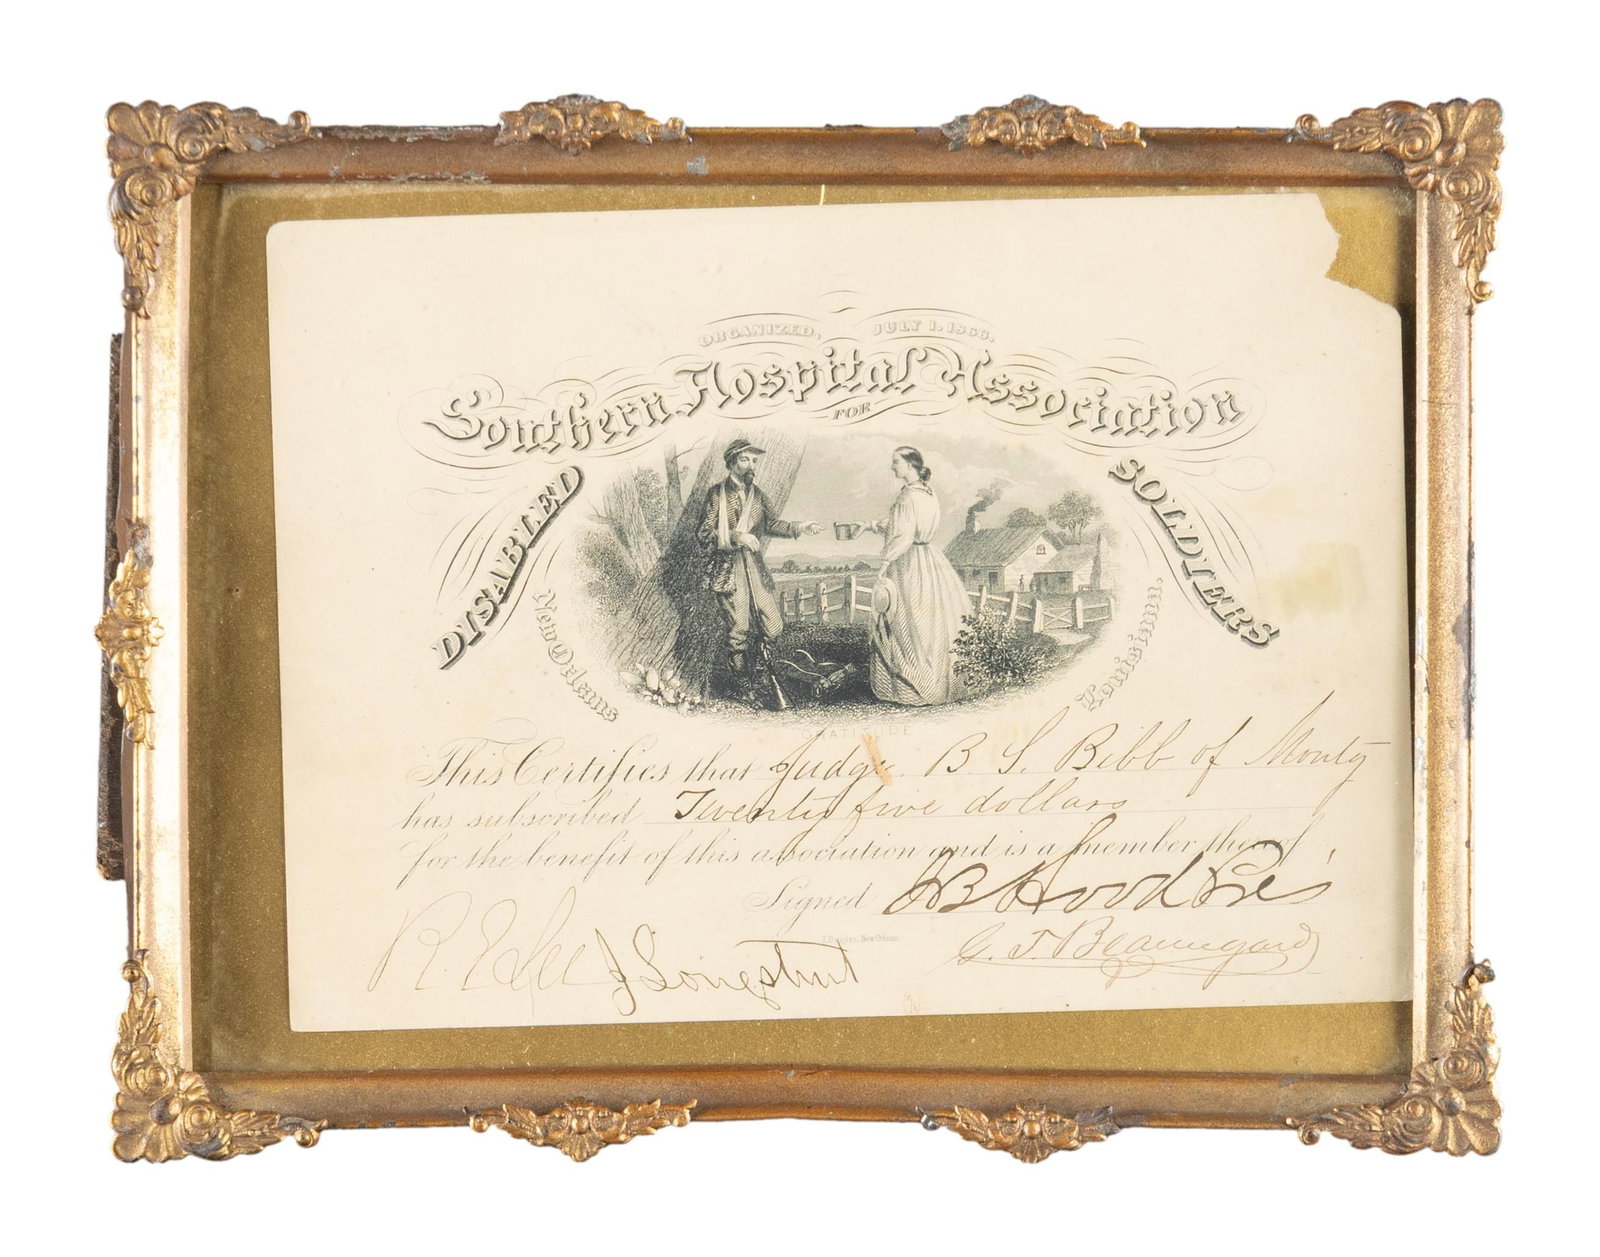 ORGANIZED, JULY 1. 1866.
Southern Hospital Association
FOR
DISABLED SOLDIERS
New Orleans Louisiana.
GRATITUDE
This Certifies that Judge. B. S. Bibb of Montg
has subscribed Twenty five dollars
for the benefit of this association and is a member thereof
Signed JB Hood Pres
R E Lee J Longstreet G. T. Beauregard
New Orleans